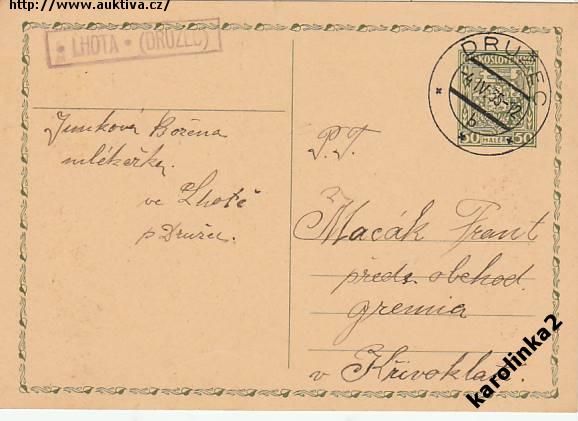 http://www.auktiva.cz/
* LHOTA * (DRUŽEC)
DRUŽEC
-4.IV.35-12
b
50 HALÉŘŮ 50
Junková Božena
mlékařka
ve Lhotě
p Družec.
P. T.
Macák Frant
předs. obchod.
gremia
v Křivoklátě.
karolinka2